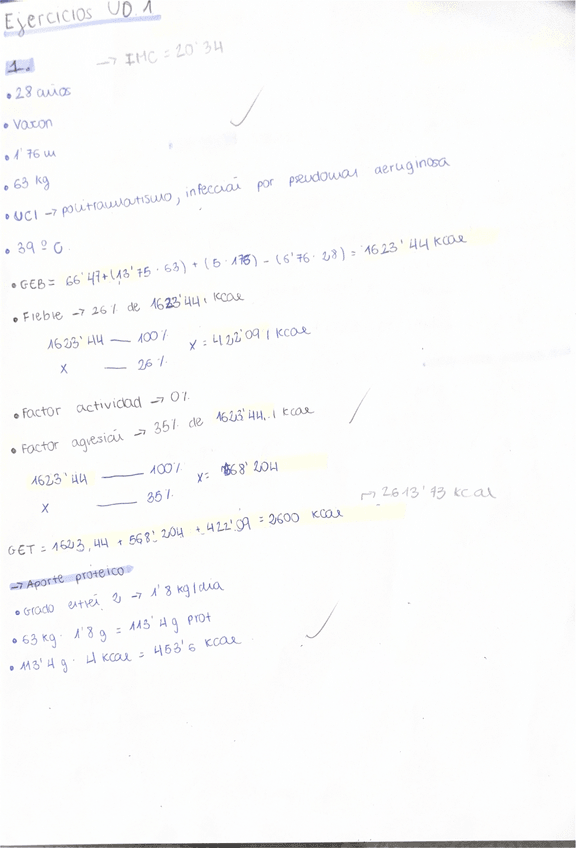 Ejercicios UD.1
1. → IMC = 20'34
• 28 años
• Varon
• 1'76 m
• 63 kg
• UCI → politraumatismo, infección por pseudomas aeruginosa
• 39º C.
• GEB = 66'47+(13'75 · 63) + (5 · 176) - (6'76 · 28) = 1623'44 Kcal
• Fiebre → 26% de 1623'44 Kcal
1623'44 — 100% x = 422'09 Kcal
x — 26%
• Factor actividad → 0%
• Factor agresión → 35% de 1623'44 Kcal
1623'44 — 100% x = 568'204
x — 35%
→ 2613'73 kcal
GET = 1623,44 + 568'204 + 422'09 = 2600 kcal
→ Aporte proteico
• Grado estrés 2 → 1'8 kg/dia
• 63 kg · 1'8 g = 113'4 g prot
• 113'4 g · 4 kcal = 453'6 kcal